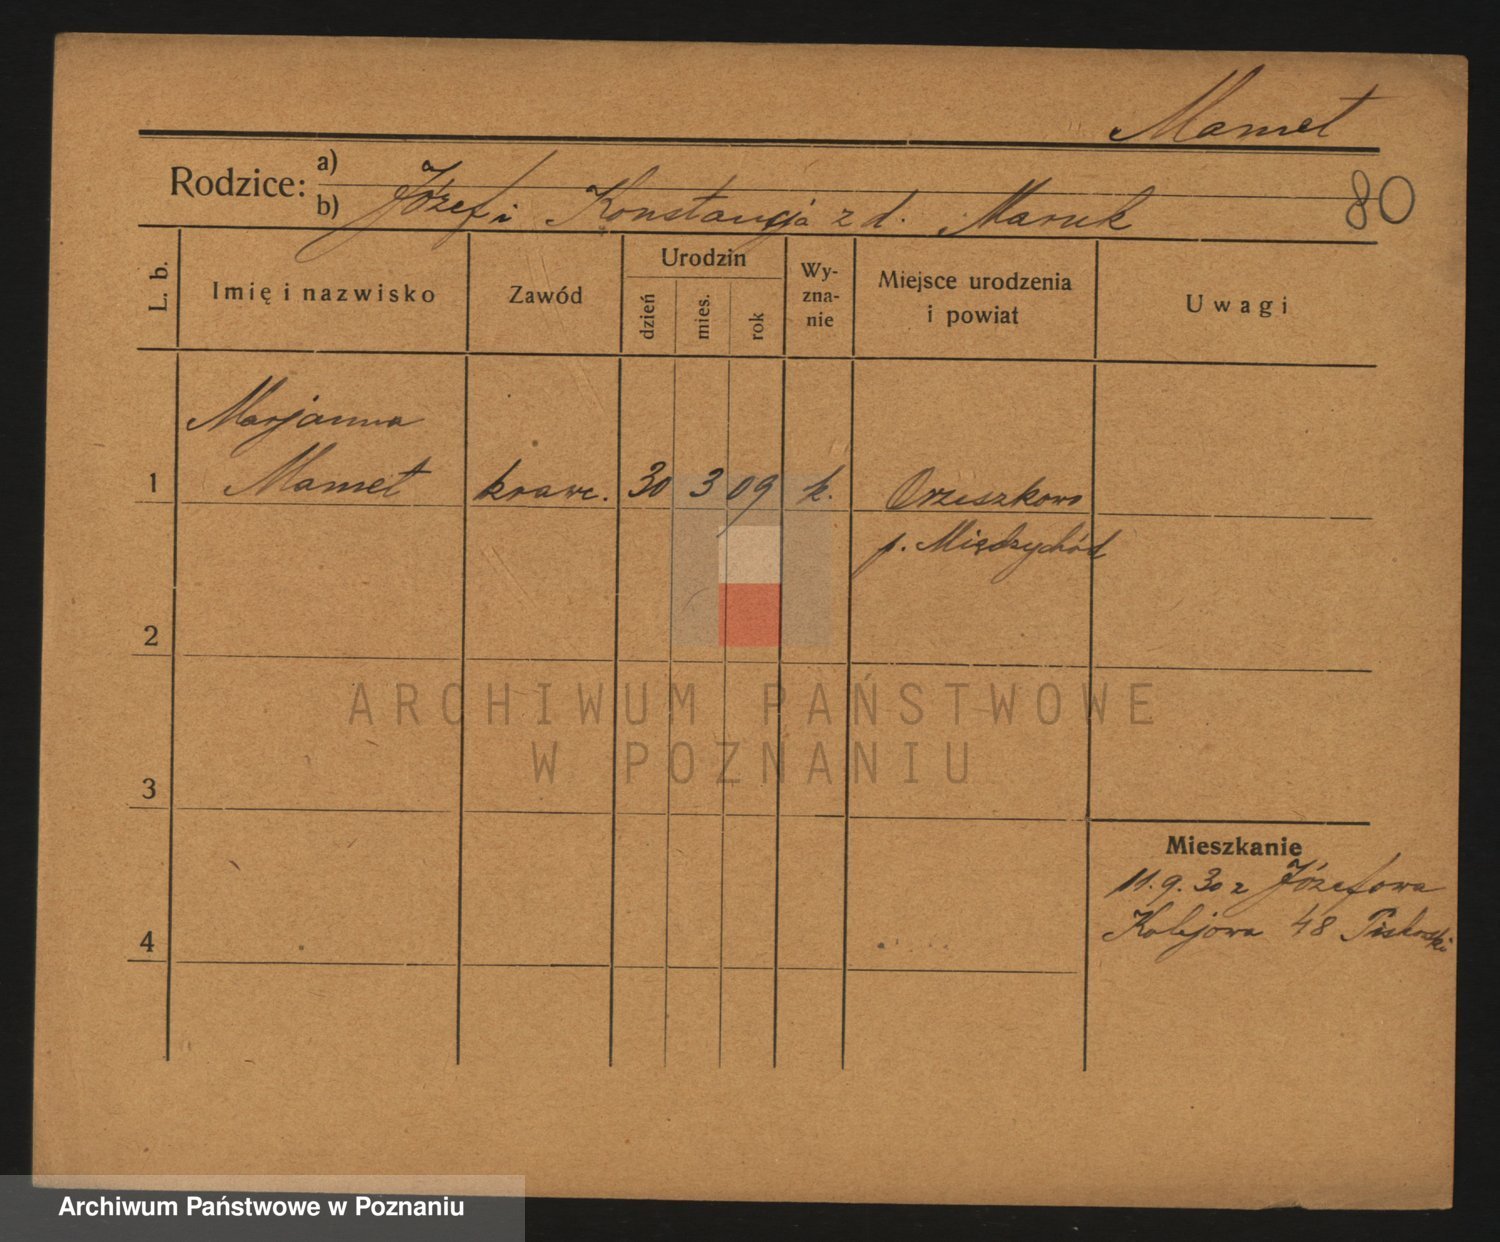 Mamet
Rodzice: a)
b) Józef i Konstancja z d. Maruk
80
L. b.
Imię i nazwisko
Zawód
Urodzin
dzień
mies.
rok
Wy-
zna-
nie
Miejsce urodzenia
i powiat
Uwagi
Marjanna
1 Mamet krawc. 30 3 09 k. Orzeszkowo
p. Międzychód
2
ARCHIWUM PAŃSTWOWE
W POZNANIU
3
Mieszkanie
11.9.30 z Józefowa
Kolejowa 48
4
Archiwum Państwowe w Poznaniu